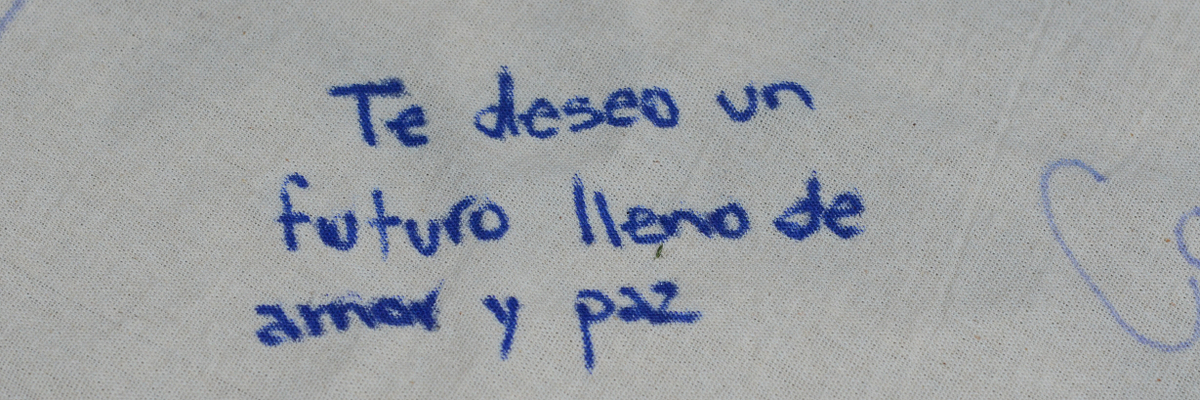 Te deseo un
futuro lleno de
amor y paz